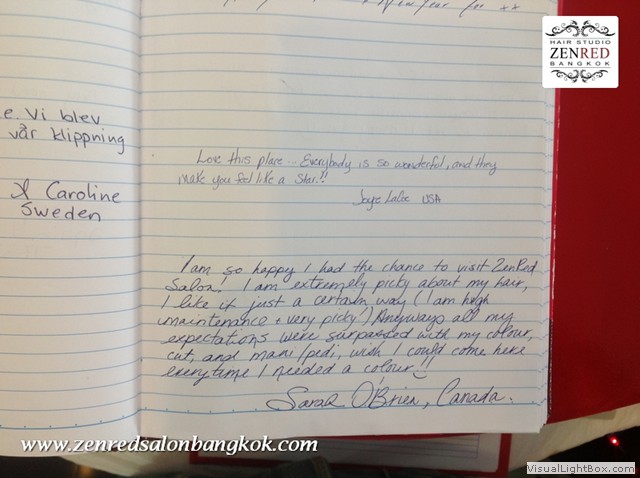 HAIR STUDIO
ZENRED
BANGKOK
e. Vi blev
vår klippning
& Caroline
Sweden
Love this place... Everybody is so wonderful, and they
make you feel like a Star!!
USA
I am so happy I had the chance to visit ZenRed
Salon! I am extremely picky about my hair,
I like it just a certain way (I am high
maintenance + very picky!) Anyways all my
expectations were surpassed with my colour,
cut, and mani/pedi, wish I could come here
everytime I needed a colour!!
Sarah O'Brien, Canada.
www.zenredsalonbangkok.com
VisualLightBox.com